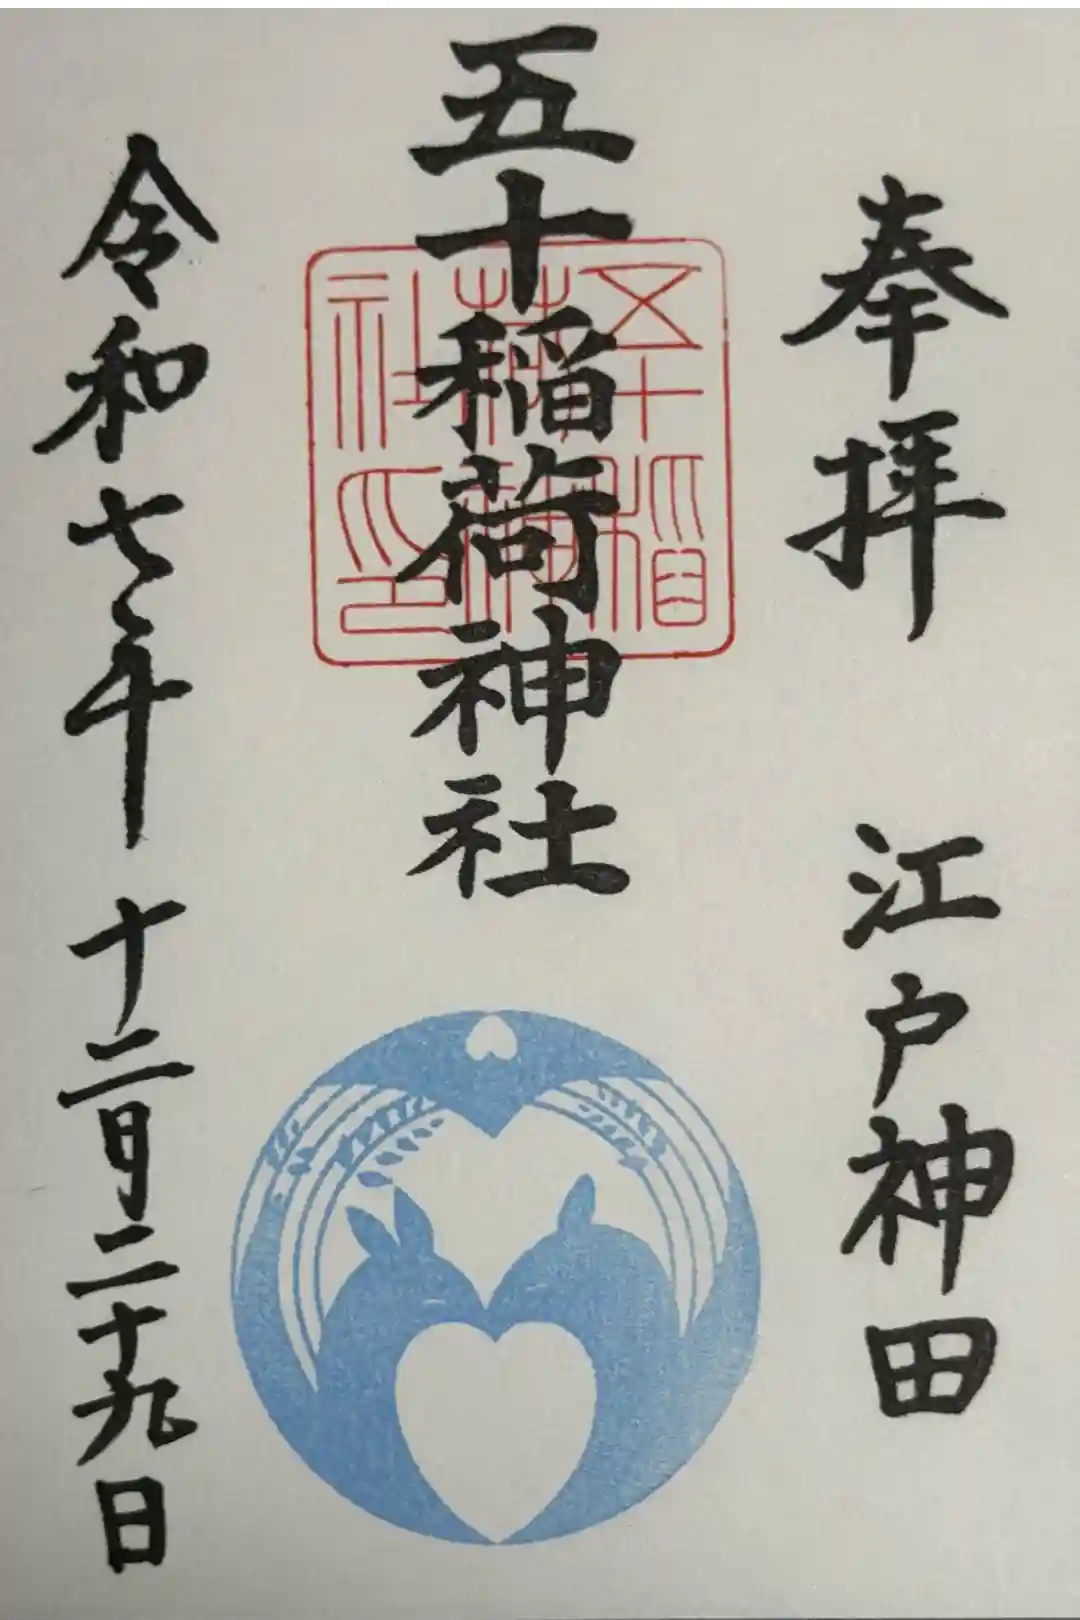 奉拝　江戸神田
五十稲荷神社
五十稲荷神社印
令和七年十二月二十九日